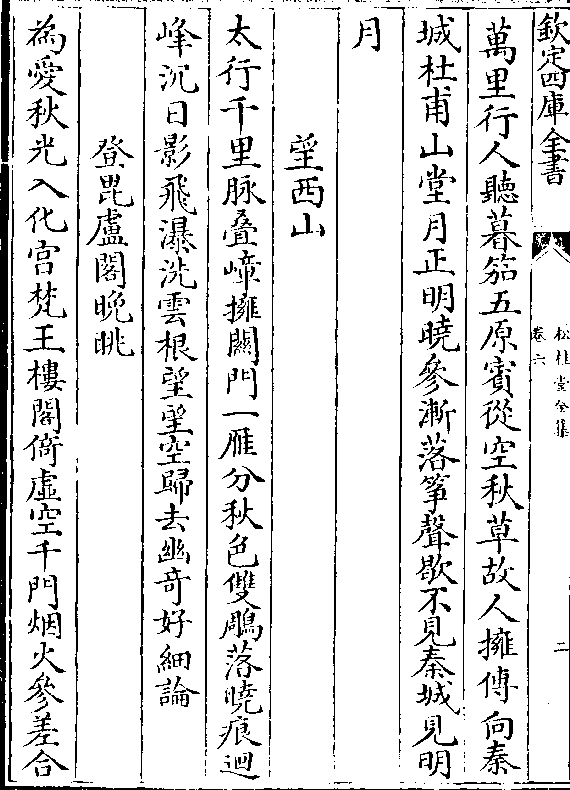 欽定四庫全書
松桂堂全集
卷六
二
萬里行人聽暮笳五原賓從空秋草故人擁傳向秦
城杜甫山堂月正明曉參漸落筝聲歇不見秦城見明
月
望西山
太行千里脉叠嶂擁關門一雁分秋色雙鵰落曉痕迴
峰沉日影飛瀑洗雲根望望空歸去幽奇好細論
登毘盧閣晚眺
為愛秋光入化宫梵王樓閣倚虛空千門烟火參差合